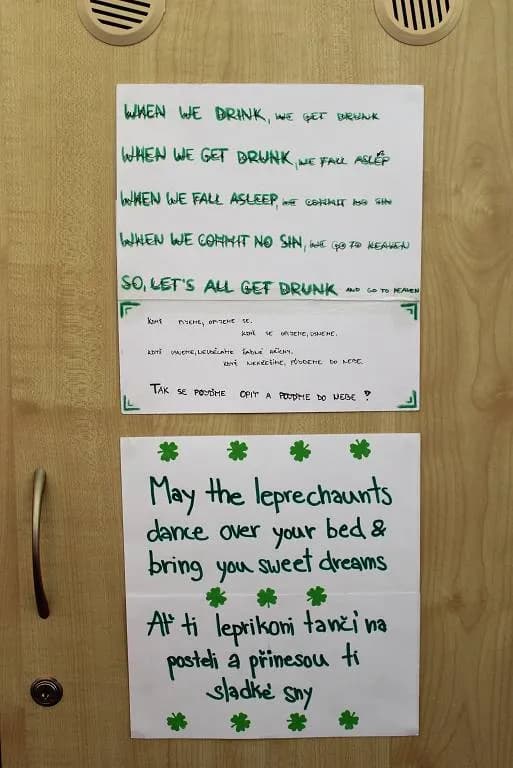 WHEN WE DRINK, WE GET DRUNK
WHEN WE GET DRUNK, WE FALL ASLEEP
WHEN WE FALL ASLEEP, WE COMMIT NO SIN
WHEN WE COMMIT NO SIN, WE GO TO HEAVEN
SO, LET'S ALL GET DRUNK AND GO TO HEAVEN
KDYŽ PIJEME, OPIJEME SE.
KDYŽ SE OPIJEME, USNEME.
KDYŽ USNEME, NEUDĚLÁME ŽÁDNÉ HŘÍCHY.
KDYŽ NEHŘEŠÍME, PŮJDEME DO NEBE.
TAK SE POJĎME OPÍT A POJĎME DO NEBE!
May the leprechaunts
dance over your bed &
bring you sweet dreams
Ať ti leprikoni tančí na
posteli a přinesou ti
sladké sny